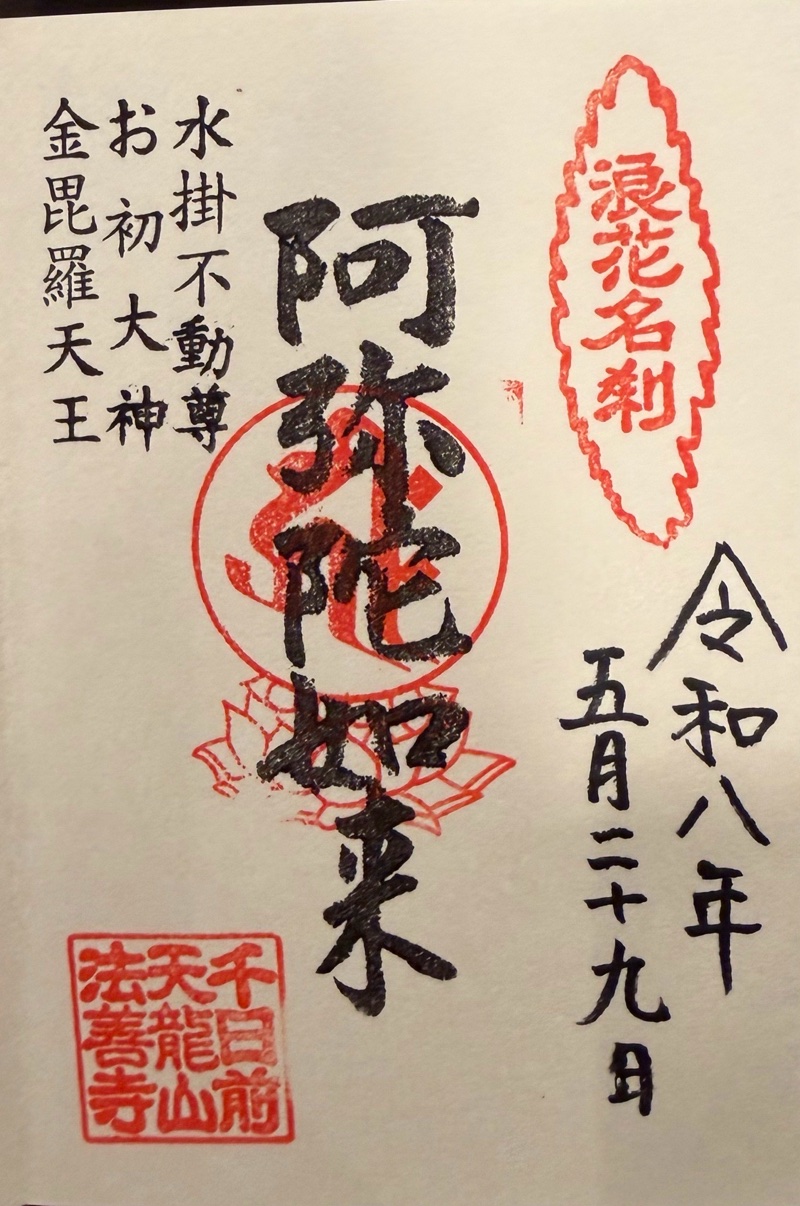 浪花名刹
令和八年
五月二十九日
阿弥陀如来
水掛不動尊
お初大神
金毘羅天王
千日前
天龍山
法善寺